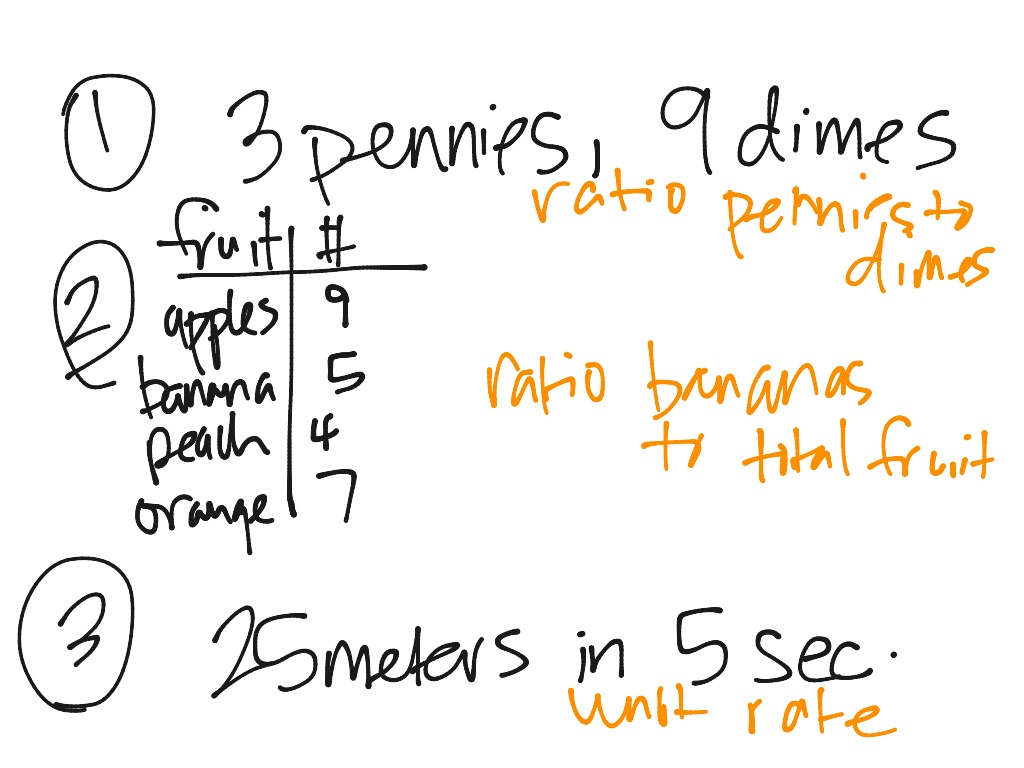 1 3 pennies, 9 dimes
ratio pennies to
dimes
2 fruit #
apples 9
banana 5
peach 4
orange 7
ratio bananas
to total fruit
3 25 meters in 5 sec.
unit rate